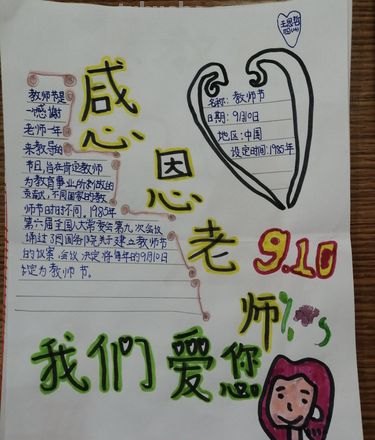 感恩老师
名称:教师节
日期:9月10日
地区:中国
设定时间:1985年
教师节是
感谢
老师一年
来教导的
节日,旨在肯定教师
为教育事业所做的
贡献,不同国家的教
师节时时不同,1985年
第六届全国人大常委会第九次会议
通过了国务院关于建立教师节
的议案,会议决定将每年的9月10日
定为教师节。
9.10
我们爱您